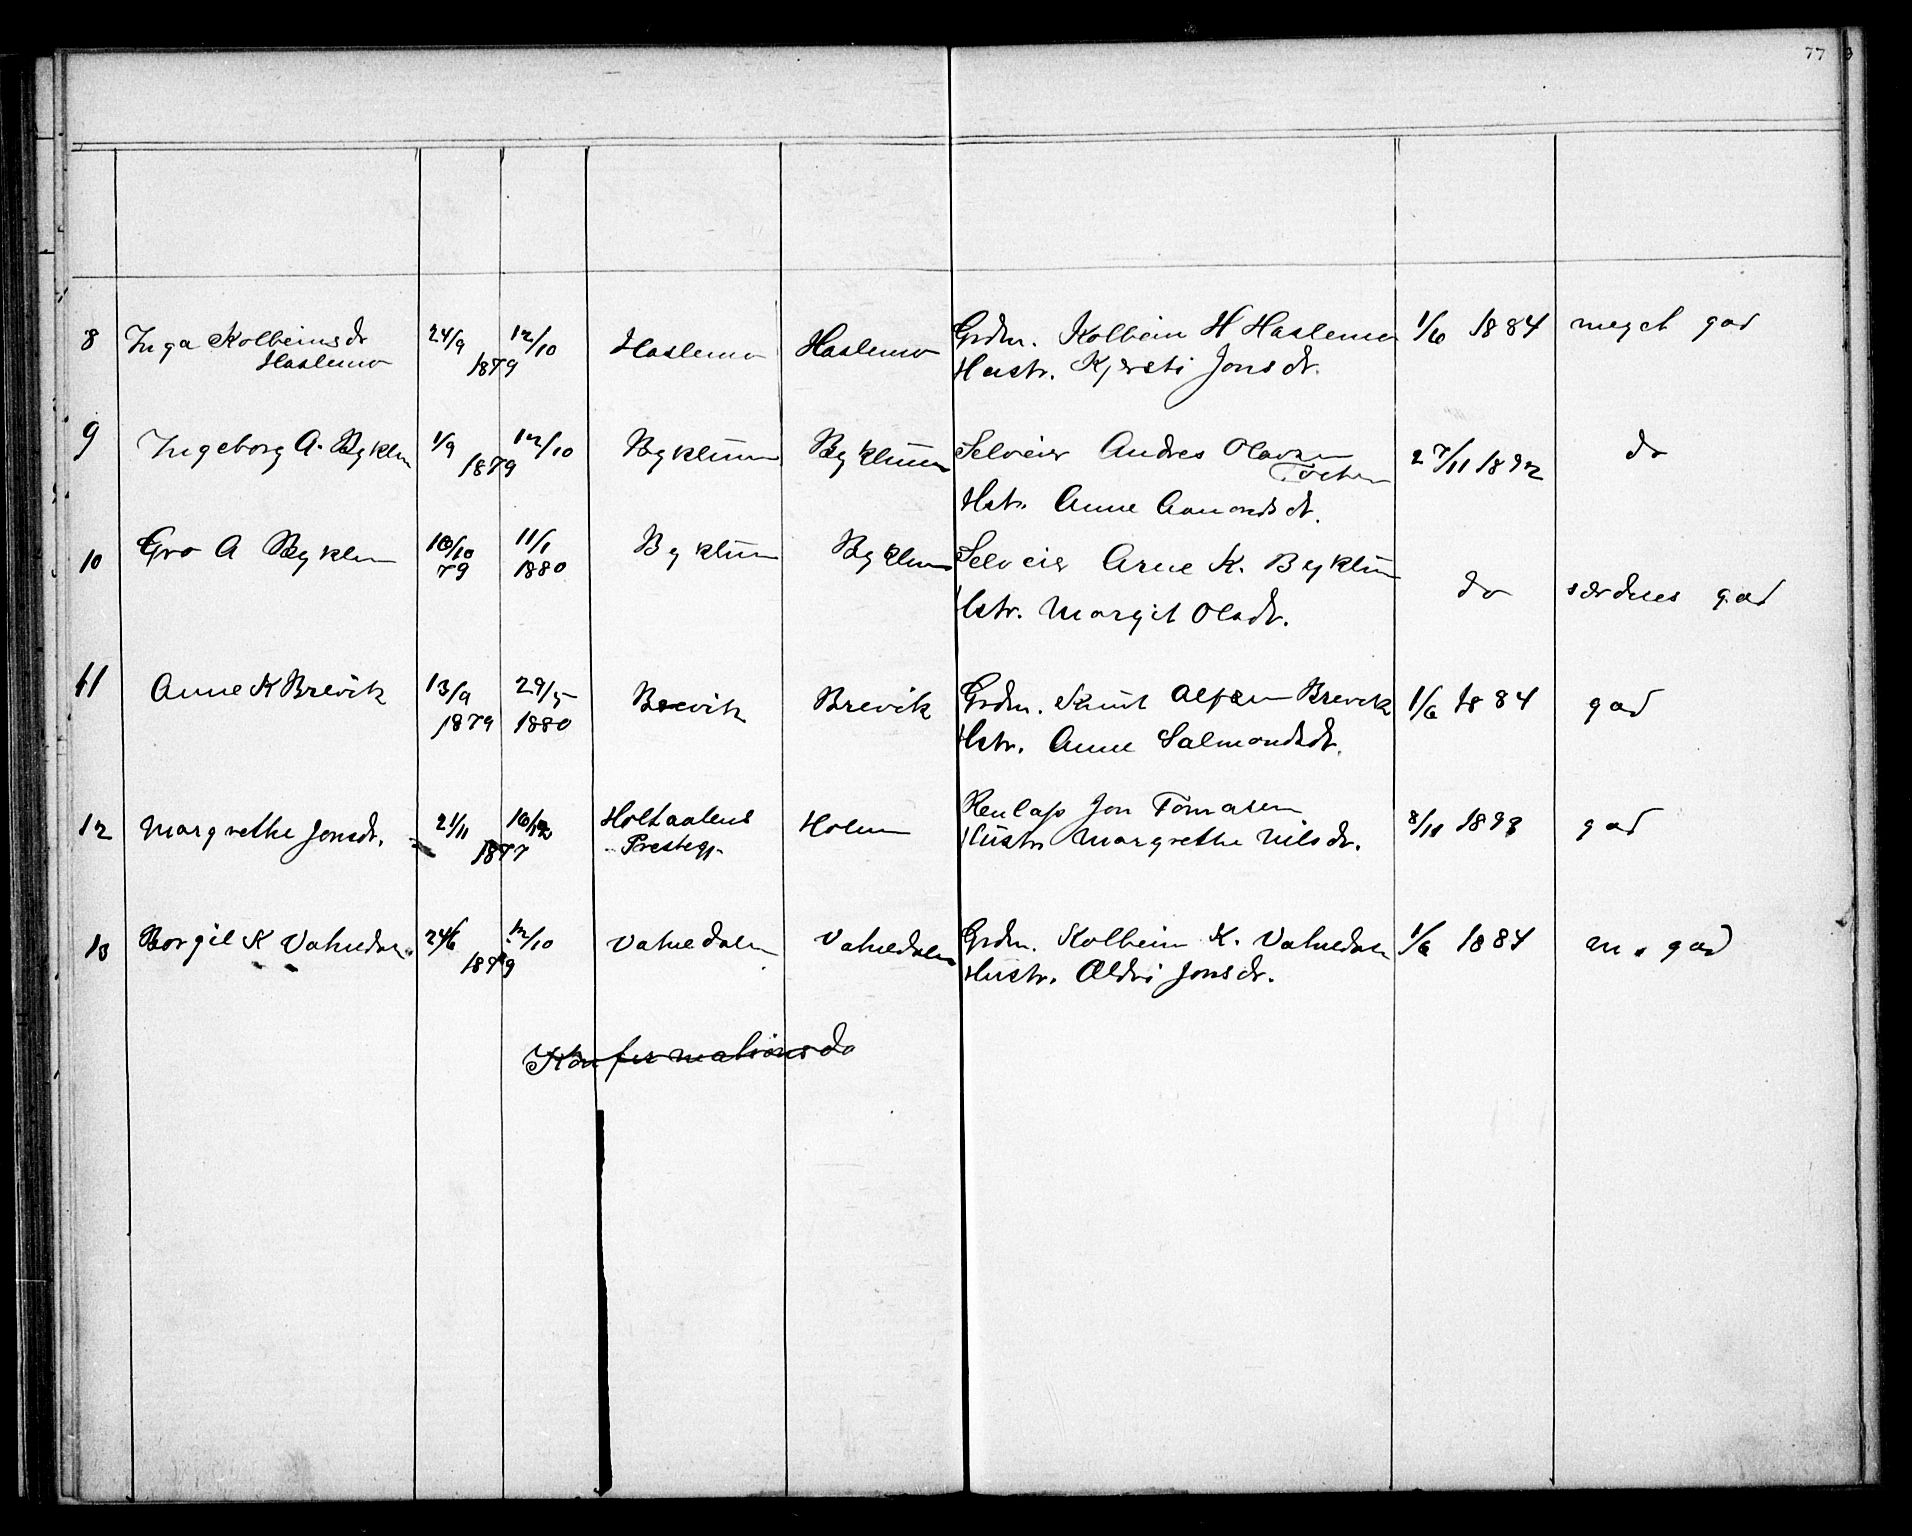 77
8 Inga Kolbeinsdr 24/9 12/10 Haslemo Haslemo Grdm. Kolbein H Haslemo 1/6 1884 meget god
Haslemo 1879 Hustr. Kjersti Jonsdr.
9 Ingeborg A. Byklum 1/9 12/10 Byklum Byklum Selveier Andres Olavsen 27/11 1892 do
1879
Hstr. Anne Aamondsdr.
10 Gro A Byklum 10/10 11/1 Byklum Byklum Selveier Arne K. Byklum do særdeles god
79 1880
Hstr. Margit Olsdr.
11 Anne K Brevik 13/9 29/5 Brevik Brevik Grdm. Knut Alfsen Brevik 1/6 1884 god
1879 1880 Hstr. Anne Salmondsdr.
12 Margrethe Jonsdr. 21/11 Holtaalens Holm Renlap Jon Tomasen 8/11 1893 god
1877 Prestegj. Hustr. Margrethe Nilsdr.
13 Borgil K Vatnedalen 24/6 12/10 Vatnedalen Vatnedalen Grdm. Kolbein K. Vatnedalen 1/6 1884 m. god
1879 Hustr. Aldri Jonsdr.
Konfirmationsdo